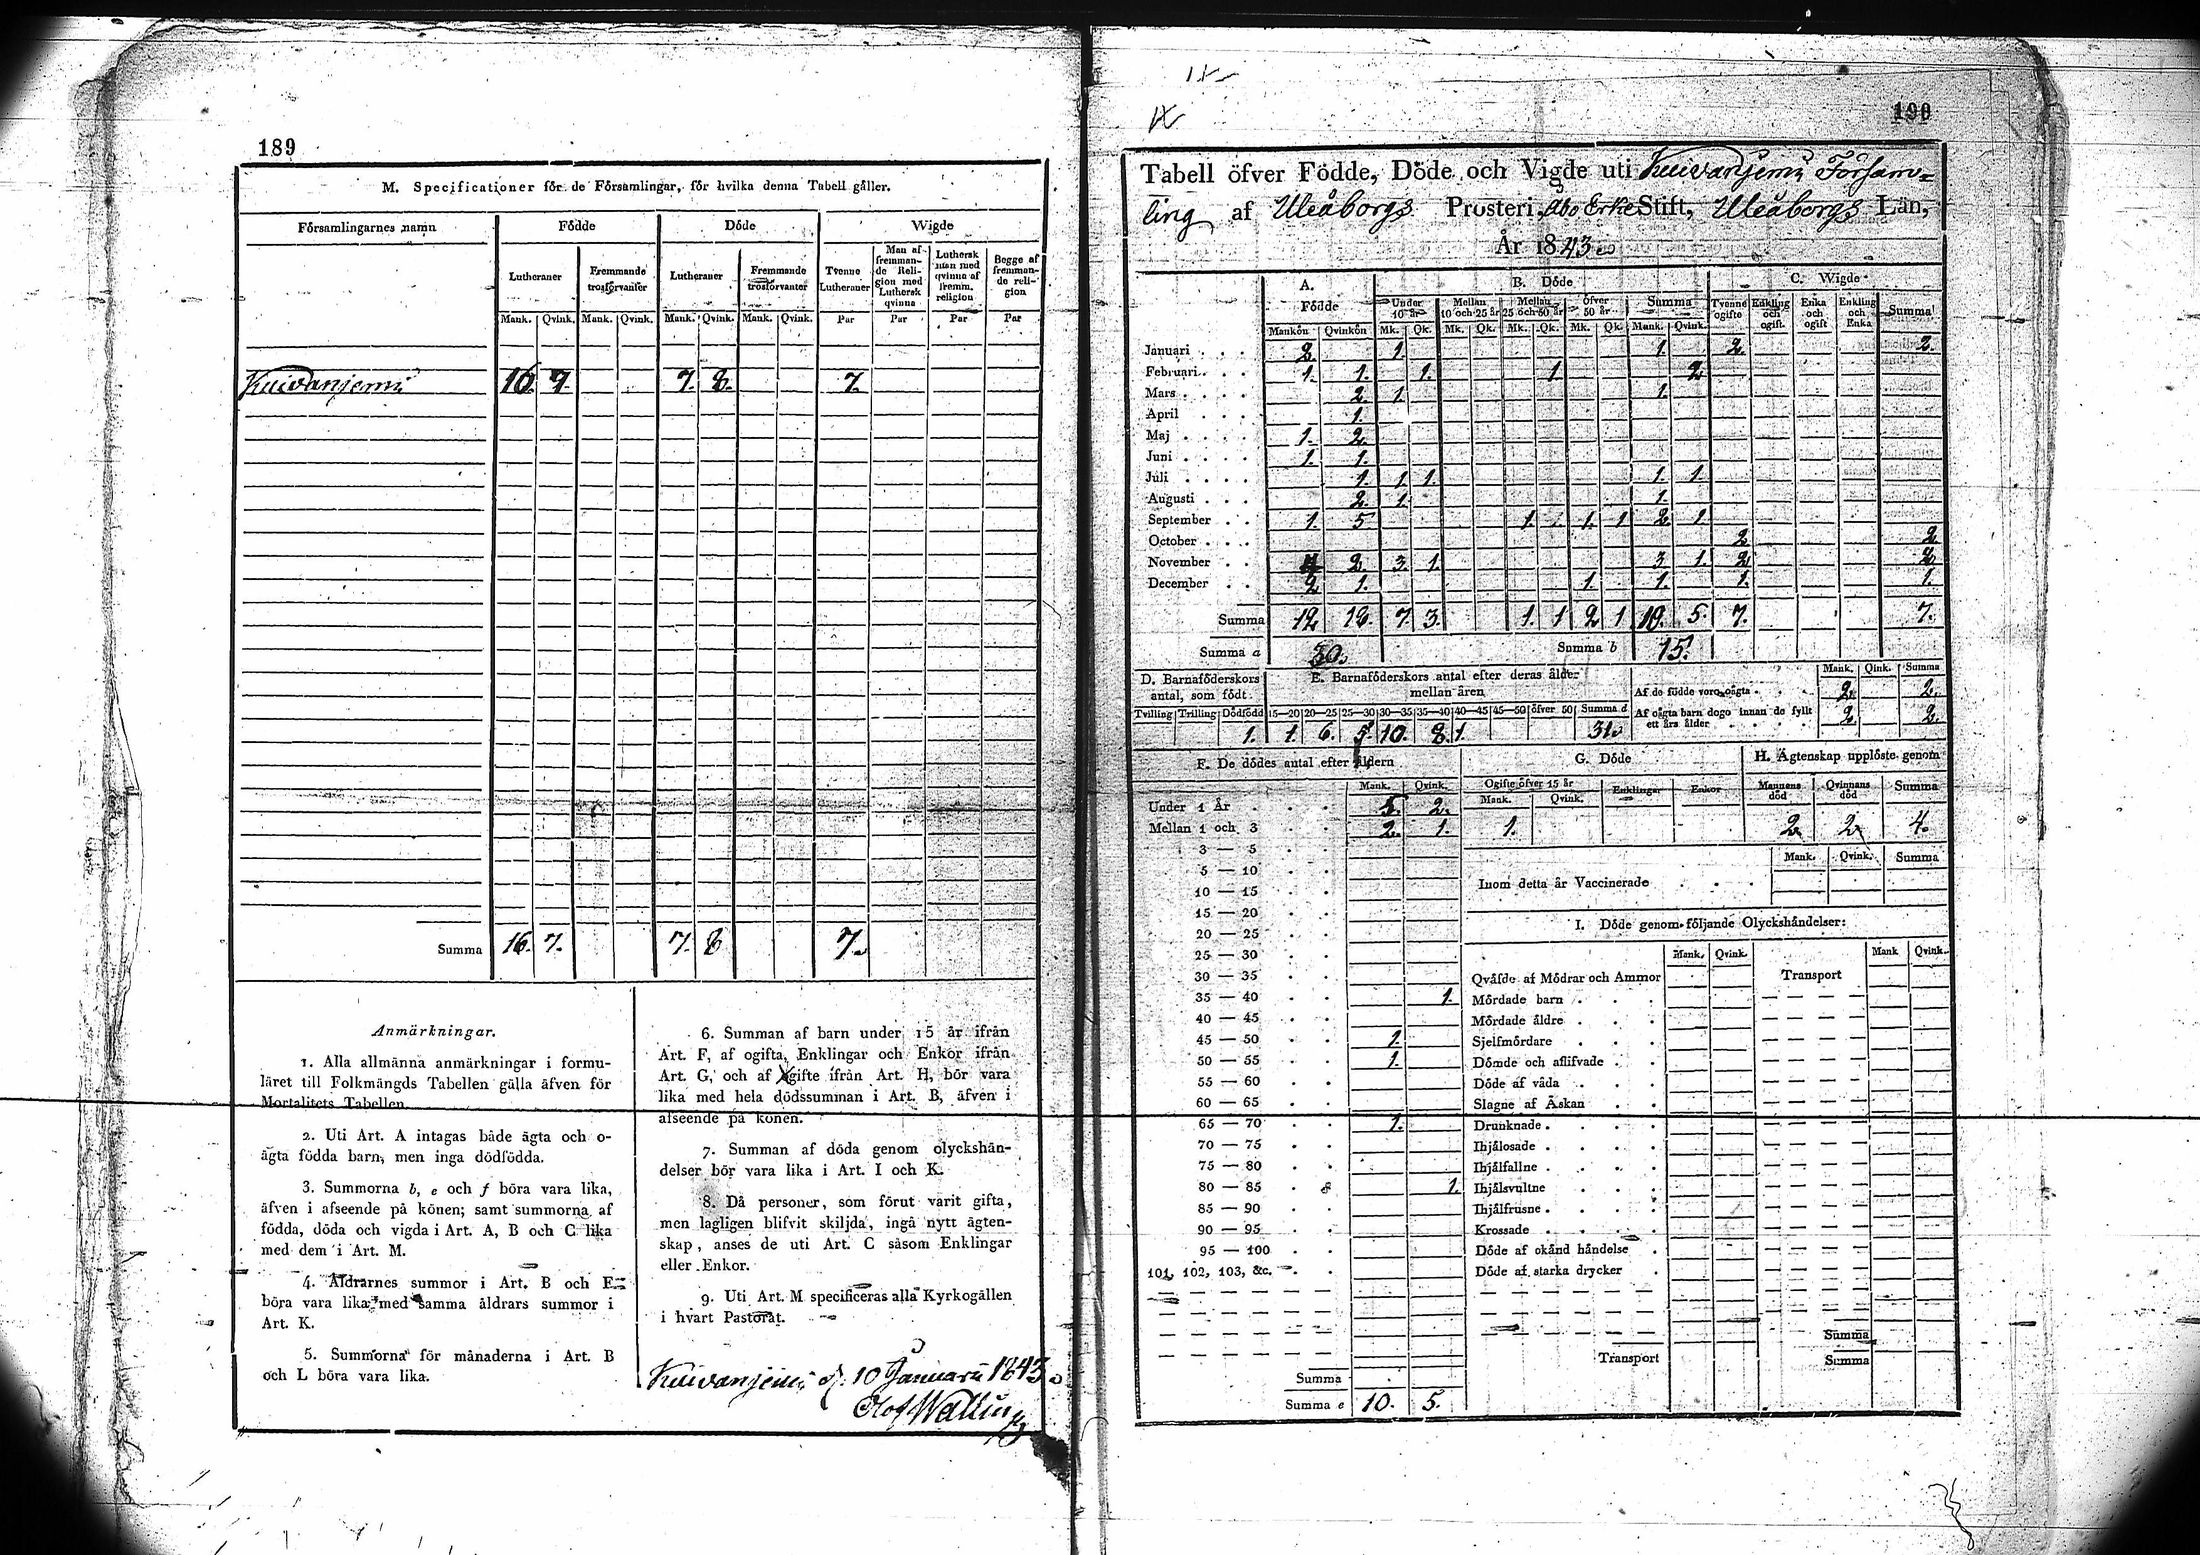 189
M. Specificationer för de Församlingar, för hvilka denna Tabell gäller.
Församlingarnes namn Födde Döde Wigde
Lutheraner Fremmande trosförvanter Lutheraner Fremmande trosförvanter Tvenne Lutheraner Man af fremmande Religion med Luthersk qvinna Luthersk man med qvinna af fremm. religion Begge af fremmande religion
Mank. Qvink. Mank. Qvink. Mank. Qvink. Mank. Qvink. Par Par Par Par
Kuivaniemi 16. 7. 7. 8. 7.
Summa 16. 7. 7. 8 7.
Anmärkningar.
1. Alla allmänna anmärkningar i formu-
läret till Folkmängds Tabellen gälla äfven för
Mortalitets Tabellen.
2. Uti Art. A intagas både ägta och o-
ägta födda barn, men inga dödfödda.
3. Summorna b, e och f böra vara lika,
äfven i afseende på könen; samt summorna af
födda, döda och vigda i Art. A, B och C lika
med dem i Art. M.
4. Åldrarnes summor i Art. B och E
böra vara lika med samma åldrars summor i
Art. K.
5. Summorna för månaderna i Art. B
och L böra vara lika.
6. Summan af barn under 15 år ifrån
Art. F, af ogifta, Enklingar och Enkor ifrån
Art. G, och af gifte ifrån Art. H, bör vara
lika med hela dödssumman i Art. B, äfven i
afseende på könen.
7. Summan af döda genom olyckshän-
delser bör vara lika i Art. I och K.
8. Då personer, som förut varit gifta,
men lagligen blifvit skiljda, ingå nytt ägten-
skap, anses de uti Art. C såsom Enklingar
eller Enkor.
9. Uti Art. M specificeras alla Kyrkogällen
i hvart Pastorat.
Kuivaniemi d. 10 Januarii 1843.
Olof Wallin
190
Tabell öfver Födde, Döde och Vigde uti Kuivaniemi Försam=
ling af Uleåborgs Prosteri, Abo Erke Stift, Uleåborgs Län,
År 1843.
A. Födde B. Döde C. Wigde
Under 10 år Mellan 10 och 25 år Mellan 25 och 50 år Öfver 50 år Summa Tvenne ogifte Enkling och ogift Enka och ogift Enkling och Enka Summa
Mankön Qvinkön Mk. Qk. Mk. Qk. Mk. Qk. Mk. Qk. Mank. Qvink.
Januari 2. 1. 1. 2. 2.
Februari 1. 1. 1. 1. 2
Mars 2. 1. 1.
April 1.
Maj 1. 2.
Juni 1. 1.
Juli 1. 1. 1. 1. 1.
Augusti 2. 1. 1.
September 1. 5. 1. 1. 1 2 1.
October 2 2
November 4 2 3. 1. 3 1. 2 2
December 2 1. 1. 1. 1. 1.
Summa 12 18. 7. 3. 1. 1 2 1 10. 5. 7. 7.
Summa a 30. Summa b 15.
D. Barnaföderskors antal, som födt E. Barnaföderskors antal efter deras ålder mellan åren
Mank. Qink. Summa
Af de födde voro oägta 2. 2.
Af oägta barn dogo innan de fyllt ett års ålder 2 2.
Tvilling Trilling Dödfödd 15—20 20—25 25—30 30—35 35—40 40—45 45—50 öfver 50 Summa d
1. 1. 6. 5. 10. 8 1. 31.
F. De dödes antal efter åldern
Mank. Qvink.
Under 1 År 5. 2.
Mellan 1 och 3 2. 1.
3 — 5
5 — 10
10 — 15
15 — 20
20 — 25
25 — 30
30 — 35
35 — 40 1.
40 — 45
45 — 50 1.
50 — 55 1.
55 — 60
60 — 65
65 — 70 1.
70 — 75
75 — 80
80 — 85 1.
85 — 90
90 — 95
95 — 100
101, 102, 103, &c.
Summa
Summa e 10. 5.
G. Döde
Ogifte öfver 15 år Enklingar Enkor
Mank. Qvink.
1.
H. Ägtenskap upplöste genom
Mannens död Qvinnans död Summa
2 2 4.
Mank. Qvink. Summa
Inom detta år Vaccinerade
I. Döde genom följande Olyckshändelser:
Mank. Qvink. Mank Qvink.
Qväfde af Mödrar och Ammor Transport
Mördade barn
Mördade äldre
Sjelfmördare
Dömde och aflifvade
Döde af våda
Slagne af Åskan
Drunknade
Ihjälosade
Ihjälfallne
Ihjälsvultne
Ihjälfrusne
Krossade
Döde af okänd händelse
Döde af starka drycker
Summa
Transport Summa